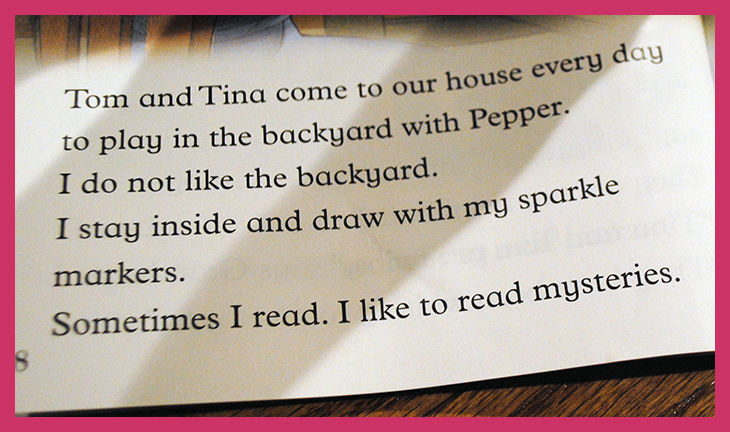 Tom and Tina come to our house every day
to play in the backyard with Pepper.
I do not like the backyard.
I stay inside and draw with my sparkle
markers.
Sometimes I read. I like to read mysteries.
8